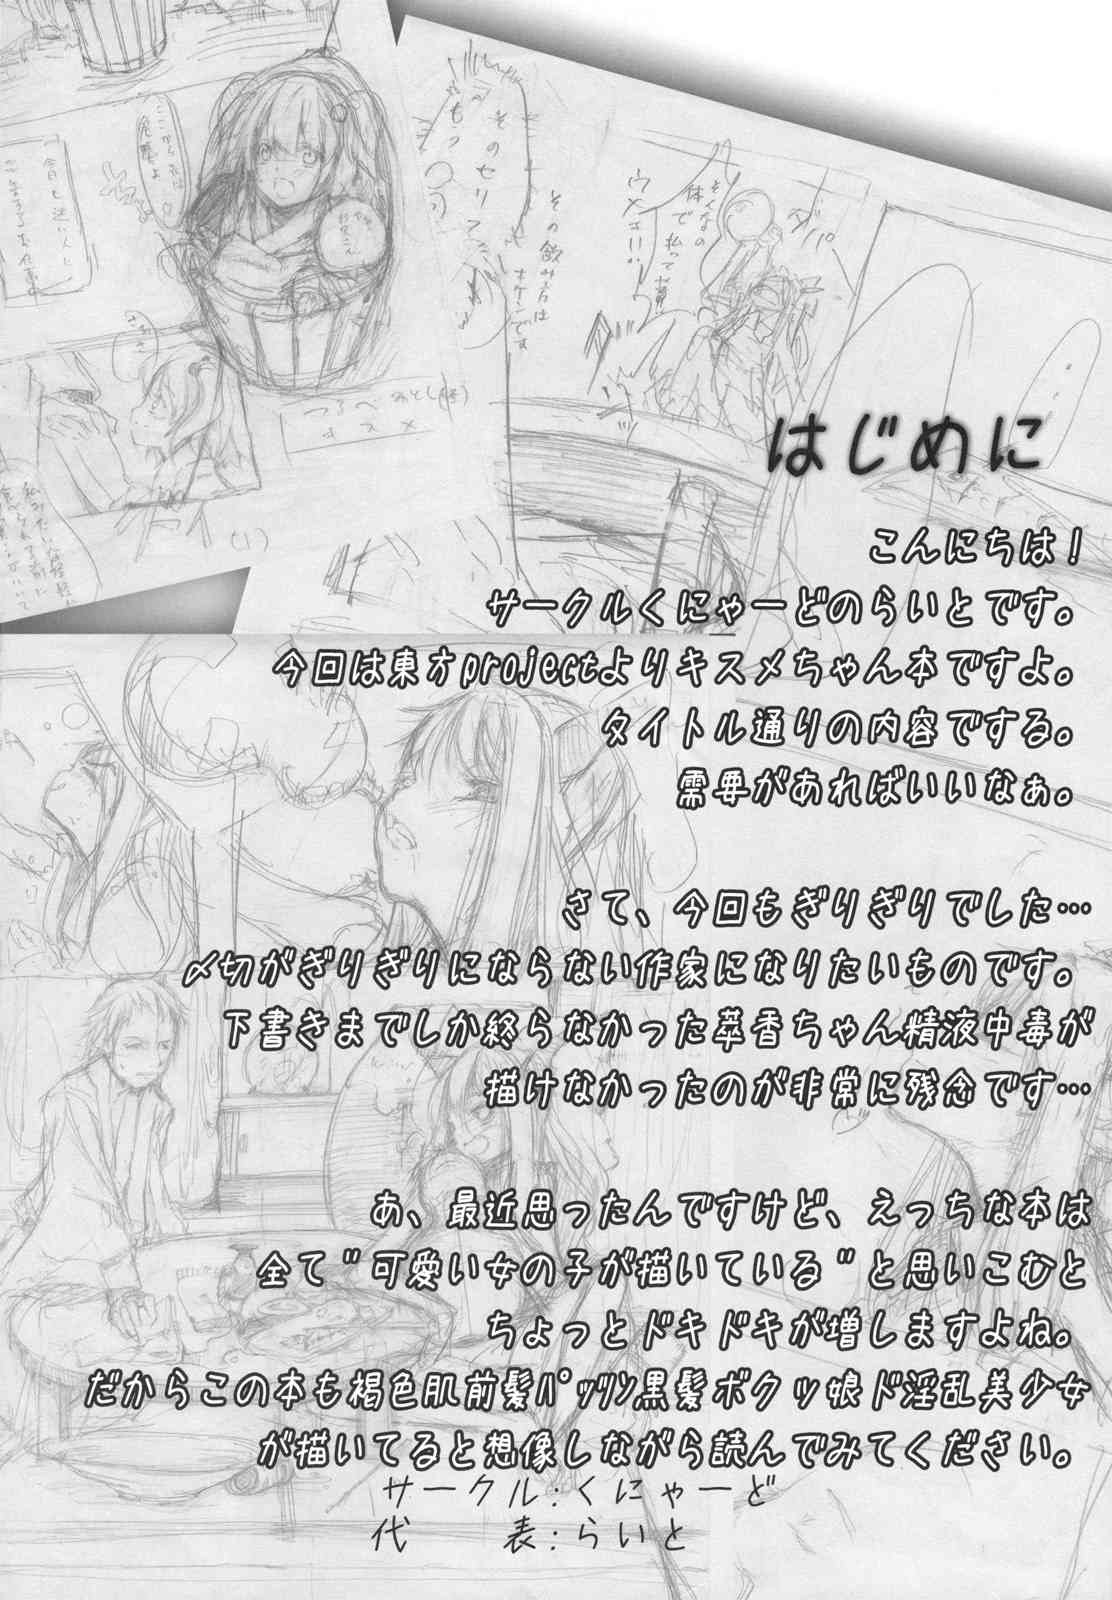 はじめに
こんにちは！
サークルくにゃーどのらいとです。
今回は東方projectよりキスメちゃん本ですよ。
タイトル通りの内容でする。
需要があればいいなぁ。
さて、今回もぎりぎりでした…
〆切がぎりぎりにならない作家になりたいものです。
下書きまでしか終らなかった萃香ちゃん精液中毒が
描けなかったのが非常に残念です…
あ、最近思ったんですけど、えっちな本は
全て"可愛い女の子が描いている"と思いこむと
ちょっとドキドキが増しますよね。
だからこの本も褐色肌前髪ﾊﾟｯﾂﾝ黒髪ボクッ娘ド淫乱美少女
が描いてると想像しながら読んでみてください。
サークル:くにゃーど
代　　表:らいと
そのセリフ
もう
その飲み方は
キケンです
そんなの
体で払って貰
ウメェ
つるべおとし(怪)
キスメ
(1)